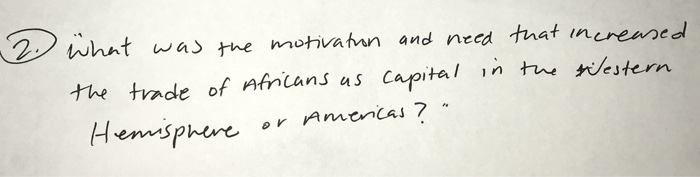 2. What was the motivation and need that increased
the trade of Africans as capital in the Western
Hemisphere or Americas? "